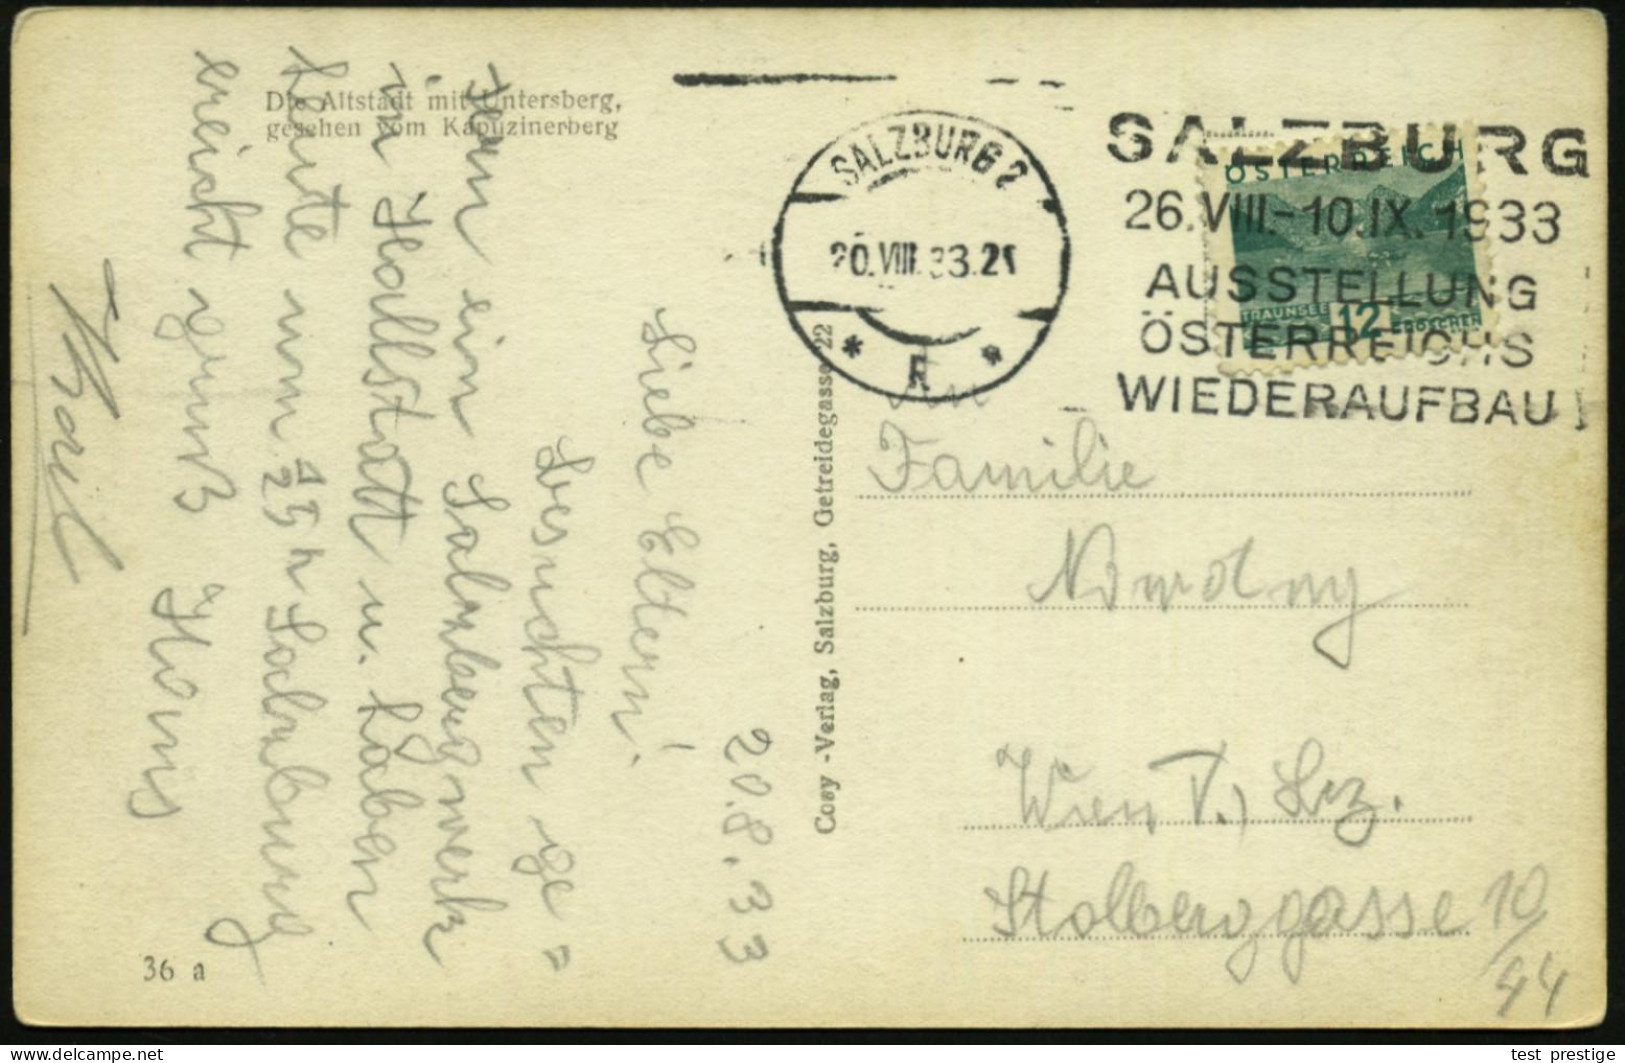 Die Altstadt mit Untersberg,
gesehen vom Kapuzinerberg
20.8.33
Liebe Eltern!
Besuchten ge=
stern ein Salzbergwerk
in Hallstatt u. haben
heute um h Salzburg
ereicht gruß Hans
Karl
36 a
Cosy-Verlag, Salzburg, Getreidegasse 22
SALZBURG 2
20.VIII.33.21
* R *
SALZBURG
26.VIII.-10.IX.1933
AUSSTELLUNG
ÖSTERREICHS
WIEDERAUFBAU
ÖSTERREICH
TRAUNSEE 12 GROSCHEN
An
Familie
Wien V., Bez.
Stolberggasse 10/44
test prestige